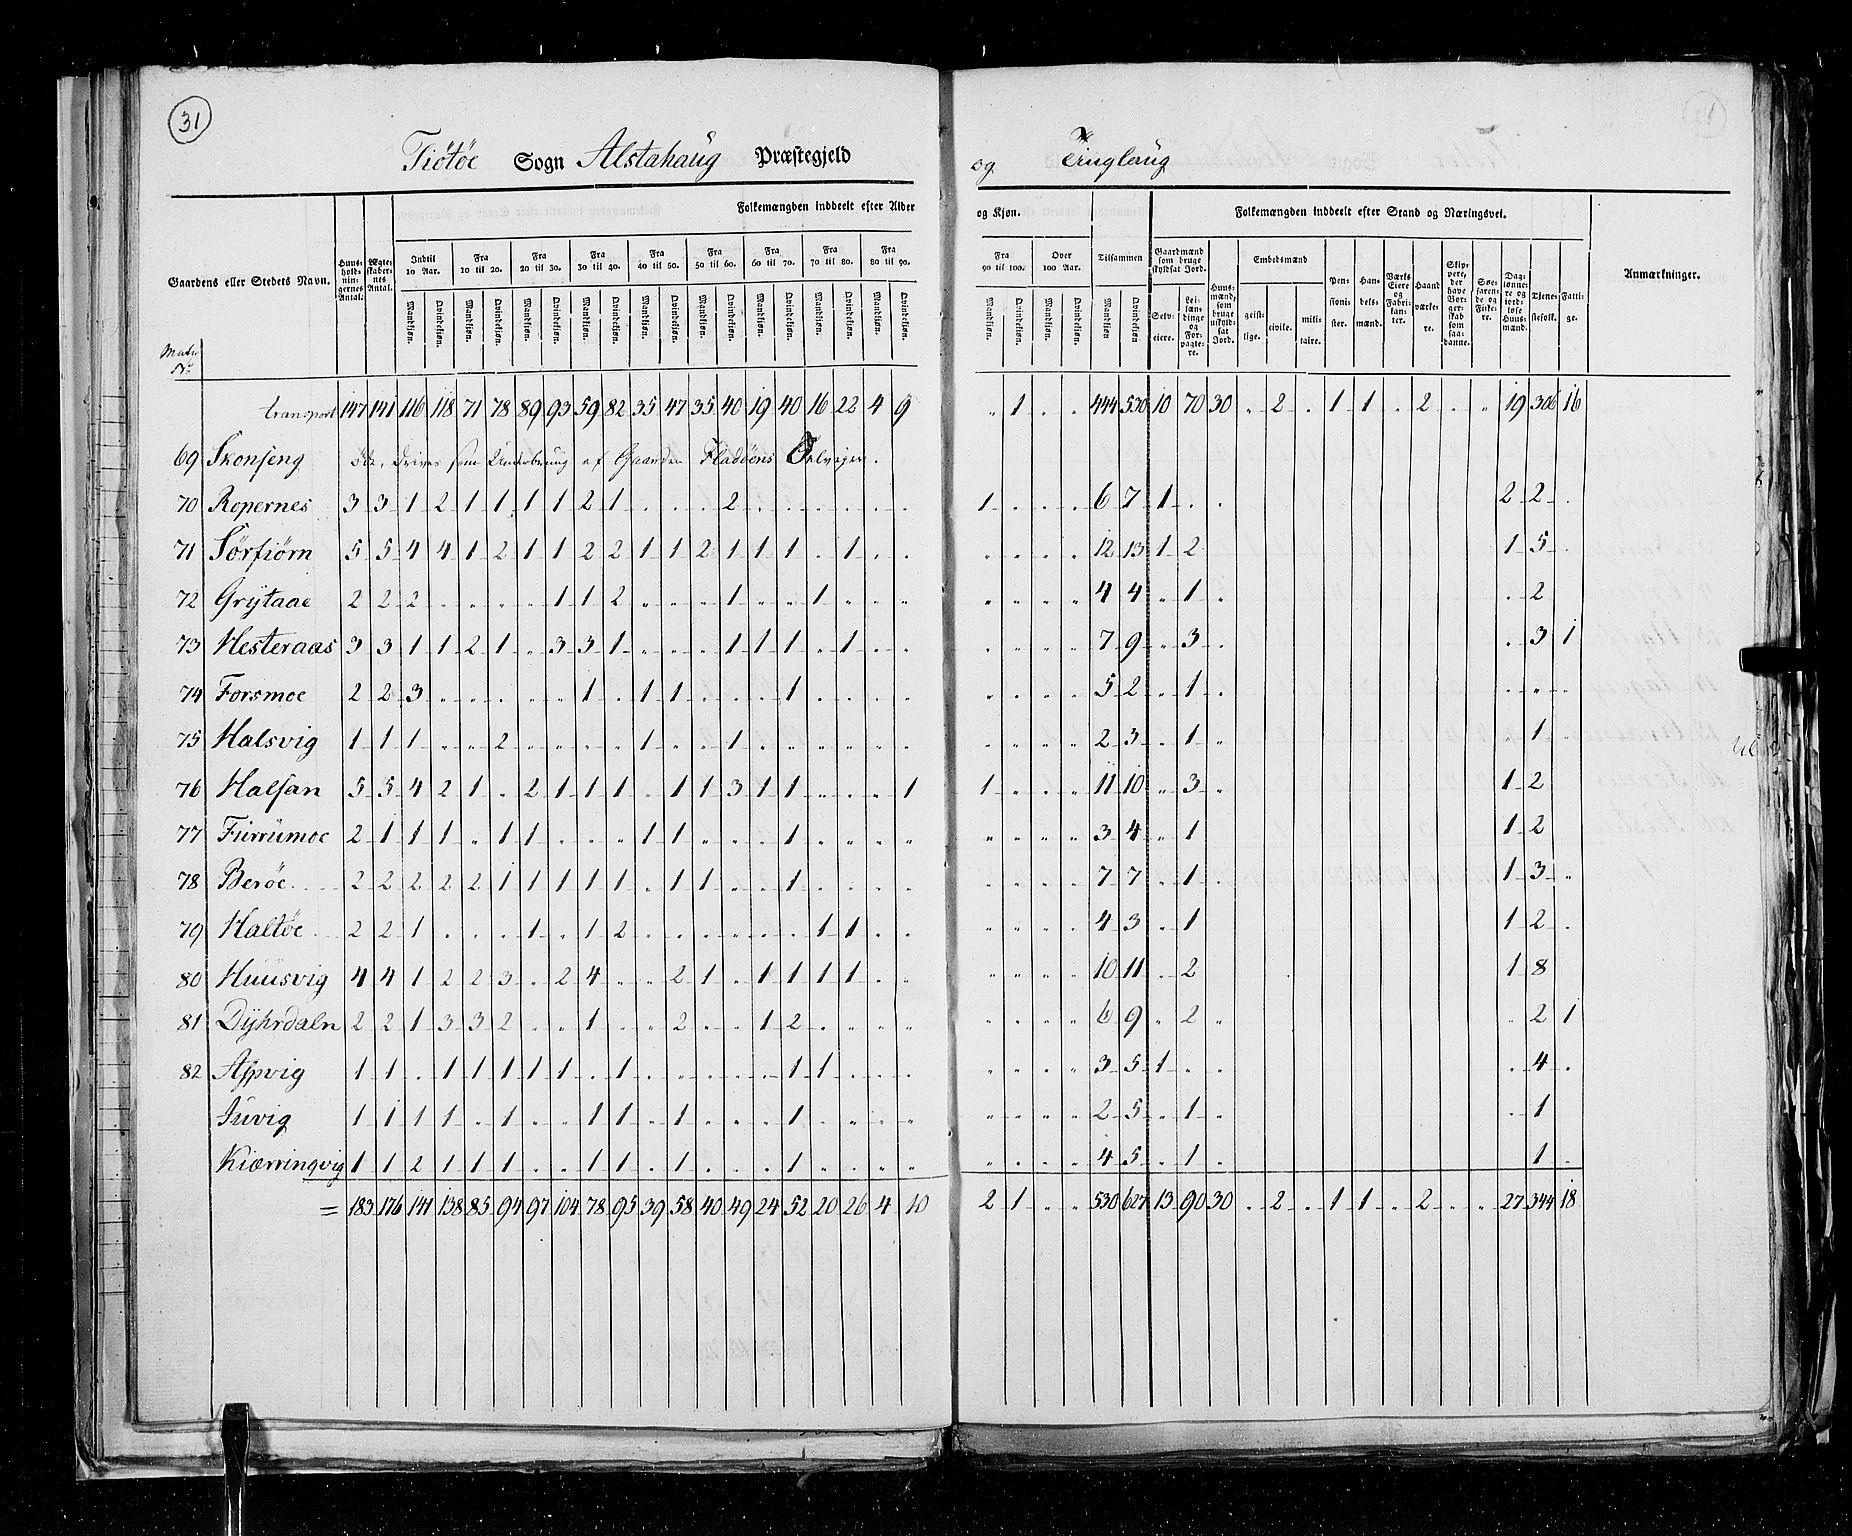 31
Tiötöe Sogn Alstahaug Præstegjeld og Tinglaug
Gaardens eller Stedets Navn. Huusholdningernes Antal. Ægteskabernes Antal. Folkemængden inddeelt efter Alder og Kjøn. Folkemængden inddeelt efter Stand og Næringsvei. Anmærkninger.
Indtil 10 Aar. Fra 10 til 20. Fra 20 til 30. Fra 30 til 40. Fra 40 til 50. Fra 50 til 60. Fra 60 til 70. Fra 70 til 80. Fra 80 til 90. Fra 90 til 100. Over 100 Aar. Tilsammen
Gaardmænd som bruge skyldsat Jord. Huusmænd, som bruge uskyldsat Jord. Embedsmænd Pensionister. Handelsmænd. Værks Eiere og Fabrikanter. Haandværkere. Skippere, der have Borgerskab som saadanne. Søefarende og Fiskere. Daglønnere og jordløse Huusmænd. Tjenestefolk. Fattige.
Mandkjøn. Qvindekjøn. Mandkjøn. Qvindekjøn. Mandkjøn. Qvindekjøn. Mandkjøn. Qvindekjøn. Mandkjøn. Qvindekjøn. Mandkjøn. Qvindekjøn. Mandkjøn. Qvindekjøn. Mandkjøn. Qvindekjøn. Mandkjøn. Qvindekjøn. Mandkjøn. Qvindekjøn. Mandkjøn. Qvindekjøn. Mandkjøn Qvindekjøn. Selveiere. Leilændinge og Forpagtere. geistlige. civile. militaire.
Matr No
transport 147 141 116 118 71 78 89 93 59 82 35 47 35 40 19 40 16 22 4 9 „ 1 . . 444 530 10 70 30 „ 2 . 1 1 . 2 . „ 19 306 16
69 Skonseng öde, drives som Underbrug af Gaarden Fladöens
70 Ropernes 3 3 1 2 1 1 1 1 2 1 . . . 2 . . . . . . 1 . . . 6 7 1 . . 2 2 .
71 Sörfiörn 5 5 4 4 1 2 1 1 2 2 1 1 2 1 1 1 . 1 . . „ . . . 12 13 1 2 1 5 .
72 Grÿtaae 2 2 2 . . . . 1 1 2 „ . . 1 „ . 1 . . „ „ . . . 4 4 „ 1 . . 2
73 Hesteraas 3 3 1 1 2 1 . 3 3 1 „ . . 1 1 1 . 1 . . „ . . . 7 9 „ 3 . . 3 1
74 Forsmoe 2 2 3 . . . . . 1 . 1 1 . . . 1 . . . . „ . . . 5 2 „ 1 . . „ .
75 Halsvig 1 1 1 . „ 2 . . . . 1 . . 1 . . . . . . „ . . . 2 3 . 1 „ „ 1 .
76 Halsan 5 5 4 2 1 . 2 1 1 1 . 1 1 3 1 1 . . . 1 1 . . . 11 10 „ 3 „ 1 2
77 Furrumoe 2 1 1 1 „ 1 1 . . . 1 1 . . . 1 . . . . „ . . . 3 4 „ 1 1 2
78 Beröe 2 2 2 2 2 1 1 1 1 1 . 1 1 . . 1 . . . . „ . . . 7 7 „ 1 . 1 3 „
79 Haltöe 2 2 1 . . . 1 . 1 2 . . . . . . 1 1 . . „ . . . 4 3 . 1 1 2 .
80 Huusvig 4 4 1 2 2 3 . 2 4 . . 2 1 . 1 1 1 1 . . „ . . . 10 11 . 2 1 8
81 Dÿhrdaln 2 2 1 3 3 2 . . 1 . . 2 . . 1 2 . . . . „ . . . 6 9 „ 2 „ „ 2 1
82 Aspvig 1 1 . 1 1 1 1 1 . 1 . . . . . 1 1 . . . „ . . . 3 5 1 . . . 4 .
Juvig 1 1 1 1 . 1 . . 1 1 . 1 . . . 1 . . . . „ . . . 2 5 „ 1 „ . 1
Kiærringvig 1 1 2 1 1 1 . . 1 1 . 1 . . . 1 . . . . „ . . . 4 5 . 1 . 1 .
= 183 176 141 138 85 94 97 104 78 95 39 58 40 49 24 52 20 26 4 10 2 1 . . 530 627 13 90 30 „ 2 . 1 1 . 2 . . 27 344 18